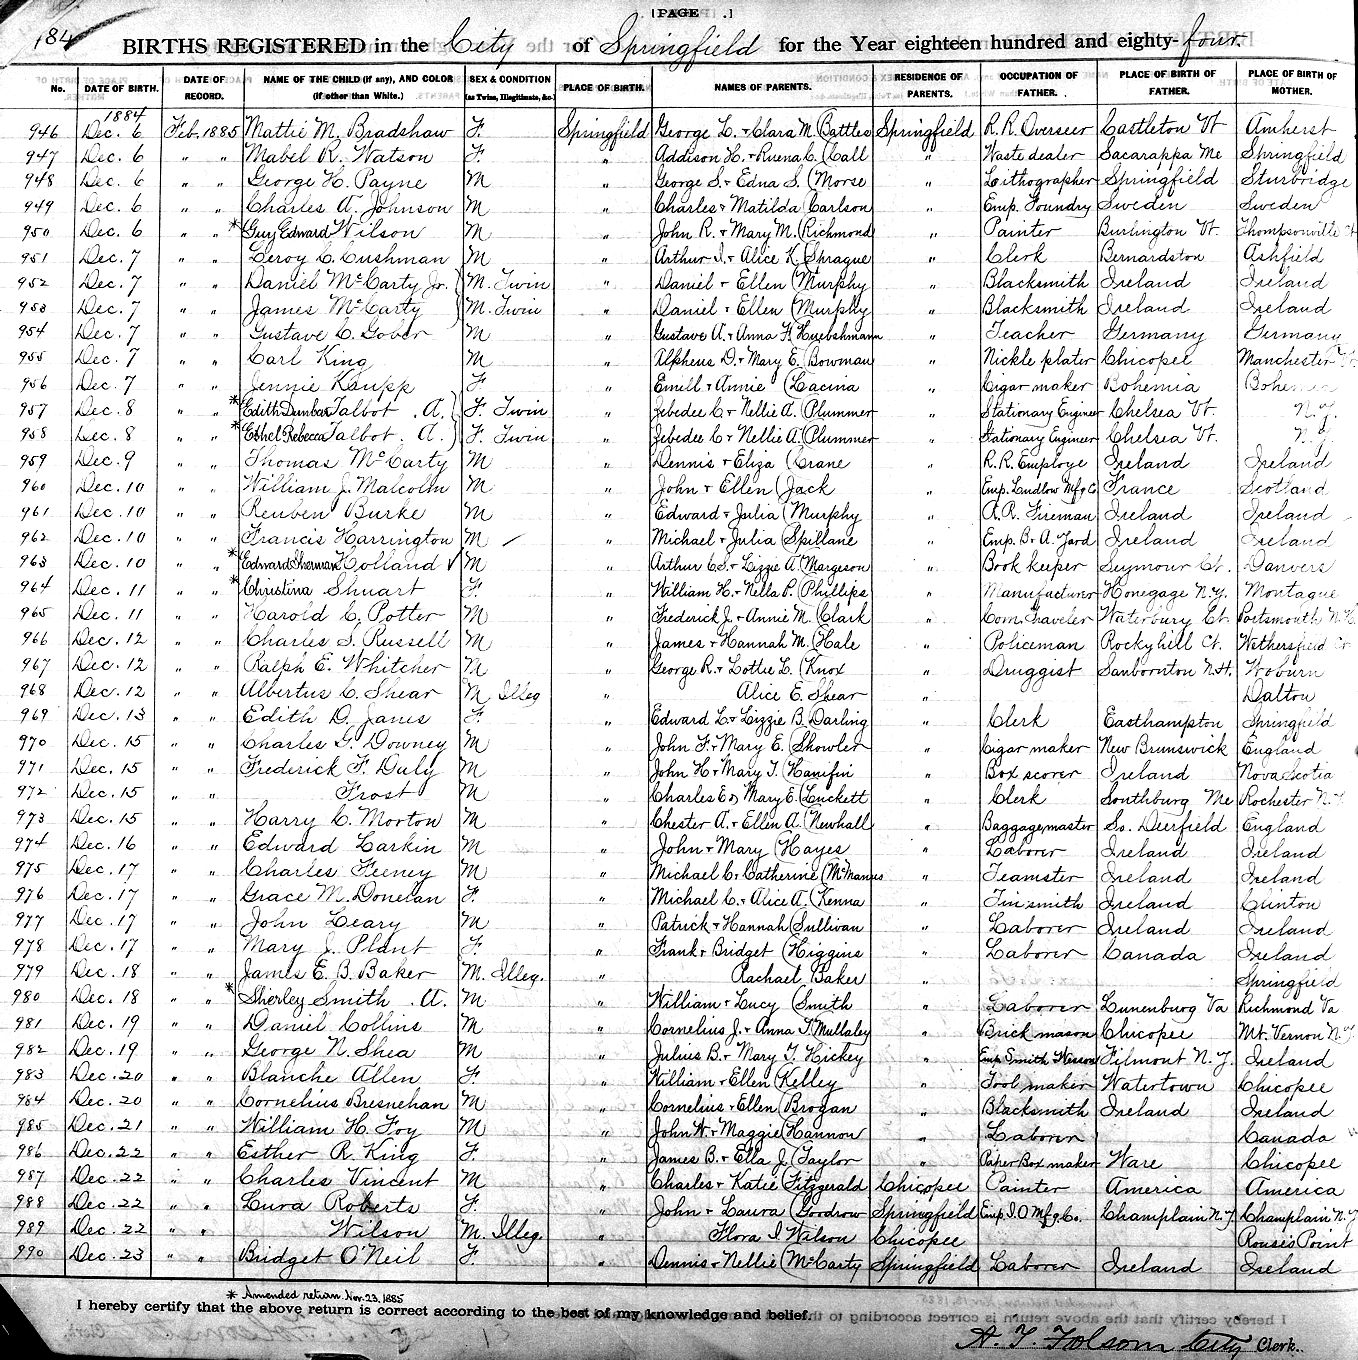 [PAGE .]
184
BIRTHS REGISTERED in the City of Springfield for the Year eighteen hundred and eighty-four.
No. DATE OF BIRTH. DATE OF RECORD. NAME OF THE CHILD (if any), AND COLOR (if other than White.) SEX & CONDITION (as Twins, Illegitimate, &c.) PLACE OF BIRTH. NAMES OF PARENTS. RESIDENCE OF PARENTS. OCCUPATION OF FATHER. PLACE OF BIRTH OF FATHER. PLACE OF BIRTH OF MOTHER.
1884
946 Dec. 6 Feb. 1885 Mattie M. Bradshaw F. Springfield George L. + Clara M. (Battles Springfield R. R. Overseer Castleton Vt Amherst
947 Dec. 6 " " Mabel R. Watson F. " Addison H. + Ruena C. (Call " Waste dealer Sacarappa Me Springfield
948 Dec. 6 " " George H. Payne M " George S. + Edna S. (Morse " Lithographer Springfield Sturbridge
949 Dec. 6 " " Charles A. Johnson M " Charles + Matilda (Carlson " Emp. Foundry Sweden Sweden
950 Dec. 6 " " * Guy Edward Wilson M " John R. + Mary M. (Richmond " Painter Burlington Vt. Thompsonville Ct
951 Dec. 7 " " Leroy C. Cushman M " Arthur I. + Alice K. (Sprague " Clerk Bernardston Ashfield
952 Dec. 7 " " Daniel McCarty Jr. M. Twin " Daniel + Ellen (Murphy " Blacksmith Ireland Ireland
953 Dec. 7 " " James McCarty M. Twin " Daniel + Ellen (Murphy " Blacksmith Ireland Ireland
954 Dec. 7 " " Gustave C. Gober M " Gustave A. + Anna H. Huebshmann " Teacher Germany Germany
955 Dec. 7 " " Carl King M " Alpheus D. + Mary E. (Bowman " Nickle plater Chicopee Manchester
956 Dec. 7 " " Jennie Kaupp F. " Emell + Annie (Lacina " Cigar maker Bohemia Bohemia
957 Dec. 8 " " * Edith Dunbar Talbot . A. F. Twin " Zebedee C. + Nellie A. (Plummer " Stationary Engineer Chelsea Vt. N.Y.
958 Dec. 8 " " * Ethel Rebecca Talbot . A. F. Twin " Zebedee C + Nellie A. (Plummer " Stationary Engineer Chelsea Vt. N.Y.
959 Dec. 9 " " Thomas McCarty M " Dennis + Eliza (Crane " R. R. Employe Ireland Ireland
960 Dec. 10 " " William J. Malcolm M " John + Ellen (Jack " Emp. Ludlow Mfg Co France Scotland
961 Dec. 10 " " Reuben Burke M " Edward + Julia (Murphy " R. R. Fireman Ireland Ireland
962 Dec. 10 " " Francis Harrington M " Michael + Julia (Spillane " Emp. B. + A. Yard Ireland Ireland
963 Dec. 10 " " * Edward Sherman Holland M " Arthur C.S. + Lizzie A. (Margeson " Book keeper Seymour Ct. Danvers
964 Dec. 11 " " * Christina Shuart F. " William H. + Nella P. (Phillips " Manufacturer Honegage N.Y. Montague
965 Dec. 11 " " Harold C. Potter M " Frederick J. + Annie M. (Clark " Com. Traveler Waterbury Ct. Portsmouth N.H.
966 Dec. 12 " " Charles S. Russell M " James + Hannah M. (Hale " Policeman Rockyhill Ct. Wethersfield Ct
967 Dec. 12 " " Ralph E. Whitcher M " George R. + Lottie L. (Knox " Druggist Sanbornton N.H. Woburn
968 Dec. 12 " " Albertus C. Shear M Illeg " Alice E. Shear " Dalton
969 Dec. 13 " " Edith D. Janes F. " Edward L. + Lizzie B. Darling " Clerk Easthampton Springfield
970 Dec. 15 " " Charles G. Downey M " John F. + Mary E. (Showler " Cigar maker New Brunswick England
971 Dec. 15 " " Frederick F. Duly M " John H + Mary T. Hanifin " Box scorer Ireland Nova Scotia
972 Dec. 15 " " Frost M " Charles E. + Mary E. (Luckett " Clerk Southburg Me Rochester N.Y.
973 Dec. 15 " " Harry C. Morton M " Chester A. + Ellen A. (Newhall " Baggagemaster So. Deerfield England
974 Dec. 16 " " Edward Larkin M " John + Mary (Hayes " Laborer Ireland Ireland
975 Dec. 17 " " Charles Feeney M " Michael C. + Catherine (McManus " Teamster Ireland Ireland
976 Dec. 17 " " Grace M. Donelan F. " Michael C. + Alice A. (Kenna " Tinsmith Ireland Clinton
977 Dec. 17 " " John Leary M " Patrick + Hannah (Sullivan " Laborer Ireland Ireland
978 Dec. 17 " " Mary J. Plant F. " Frank + Bridget (Higgins " Laborer Canada Ireland
979 Dec. 18 " " James E. B. Baker M. Illeg. " Rachael Baker " Springfield
980 Dec. 18 " " * Sherley Smith . A. M " William + Lucy (Smith " Laborer Lunenburg Va Richmond Va
981 Dec. 19 " " Daniel Collins M " Cornelius J. + Anna T. Mullaley " Brick mason Chicopee Mt. Vernon N.Y.
982 Dec. 19 " " George N. Shea M " Julius B. + Mary T. Hickey " Emp. Smith Wesson Filmont N.Y. Ireland
983 Dec. 20 " " Blanche Allen F. " William + Ellen (Kelley " Tool maker Watertown Chicopee
984 Dec. 20 " " Cornelius Bresnehan M " Cornelius + Ellen (Brogan " Blacksmith Ireland Ireland
985 Dec. 21 " " William H. Foy M " John W. + Maggie (Hannon " Laborer " Canada
986 Dec. 22 " " Esther R. King F. " James B. + Ella J. (Taylor " Paper Box maker Ware Chicopee
987 Dec. 22 " " Charles Vincent M " Charles + Katie (Fitzgerald Chicopee Painter America America
988 Dec. 22 " " Lura Roberts F. " John + Laura (Goodrow Springfield Emp. I. O. Mfg. Co. Champlain N.Y. Champlain N.Y
989 Dec. 22 " " Wilson M. Illeg. " Flora I Wilson Chicopee Rouses Point
990 Dec. 23 " " Bridget O'Neil F. " Dennis + Nellie (McCarty Springfield Laborer Ireland Ireland
* Amended return Nov. 23, 1885
I hereby certify that the above return is correct according to the best of my knowledge and belief.
A. T. Folsom City Clerk.